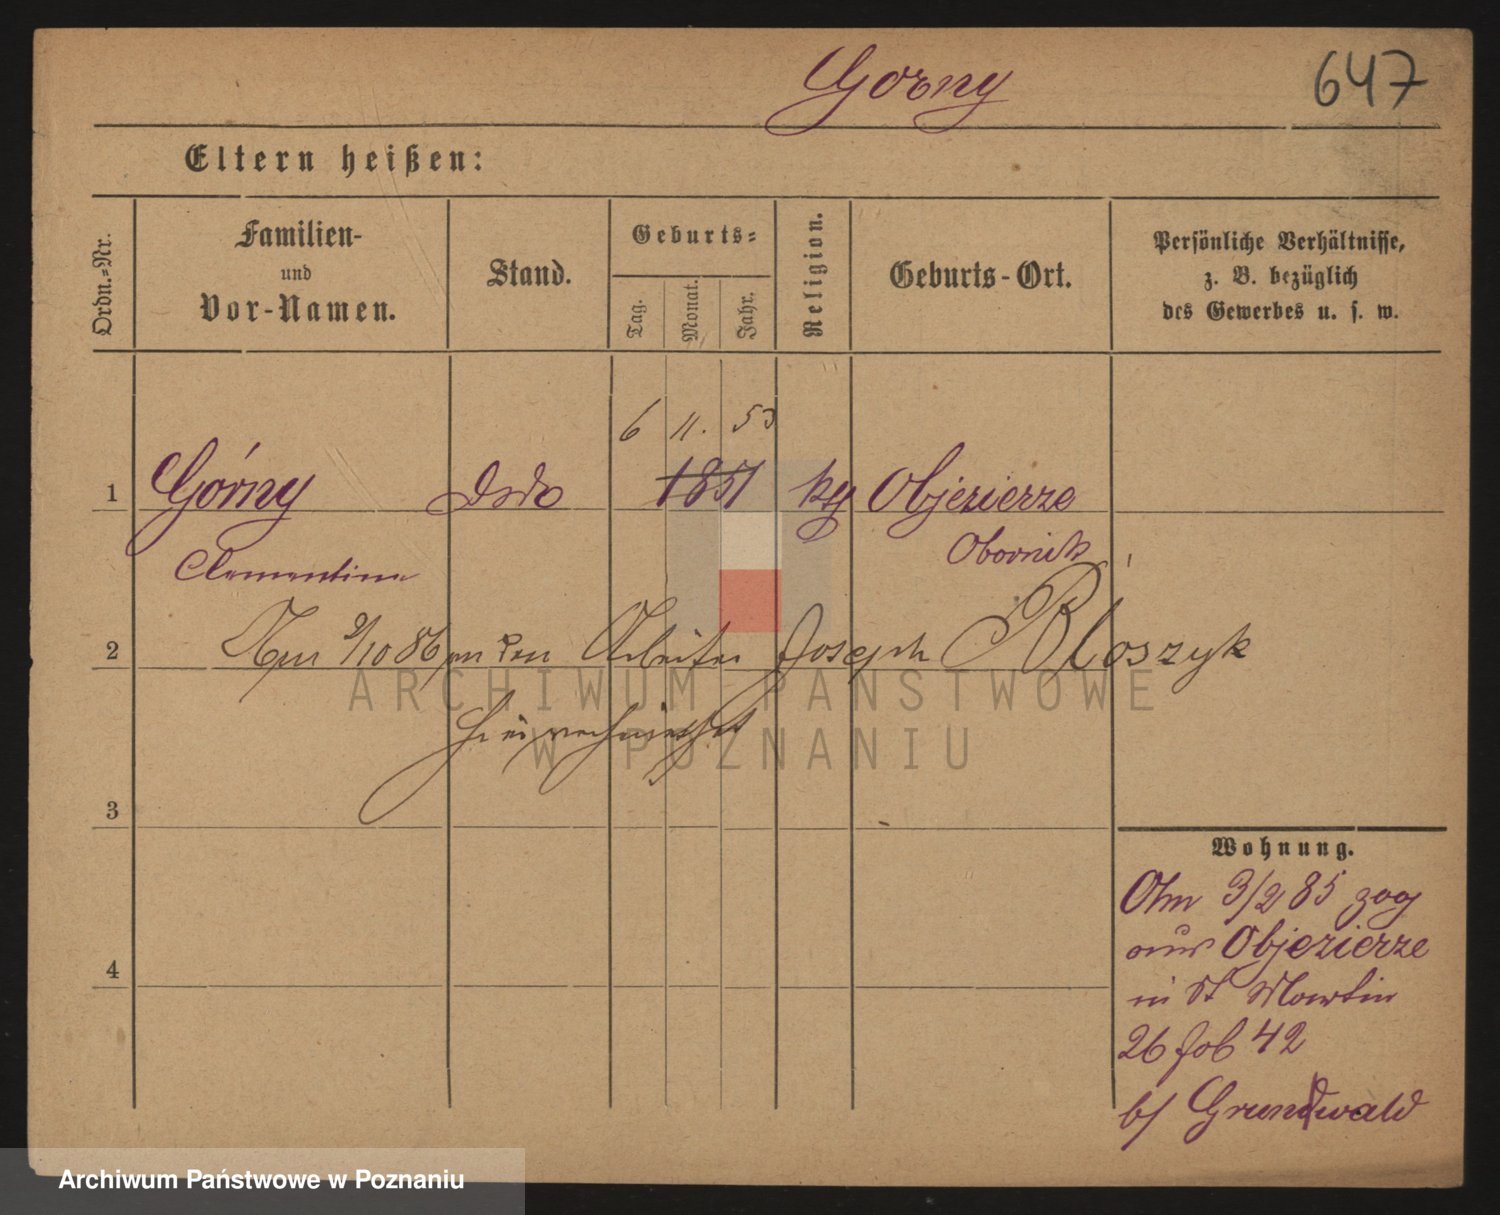 Gorny 647
Eltern heißen:
Ordn.=Nr.
Familien-
und
Vor-Namen.
Stand.
Geburts=
Tag.
Monat.
Jahr.
Religion.
Geburts-Ort.
Persönliche Verhältnisse,
z. B. bezüglich
des Gewerbes u. s. w.
6 11. 53
1 Górny 1851 Objezierze
Clementine Obornik
2 Am 9/10 86 an den Arbeiter Joseph Bloszyk
hier verheirathet
3
4
Wohnung.
3/2 85 zog
aus Objezierze
in St Martin
26 42
b/ Grunwald
ARCHIWUM PAŃSTWOWE
W POZNANIU
Archiwum Państwowe w Poznaniu